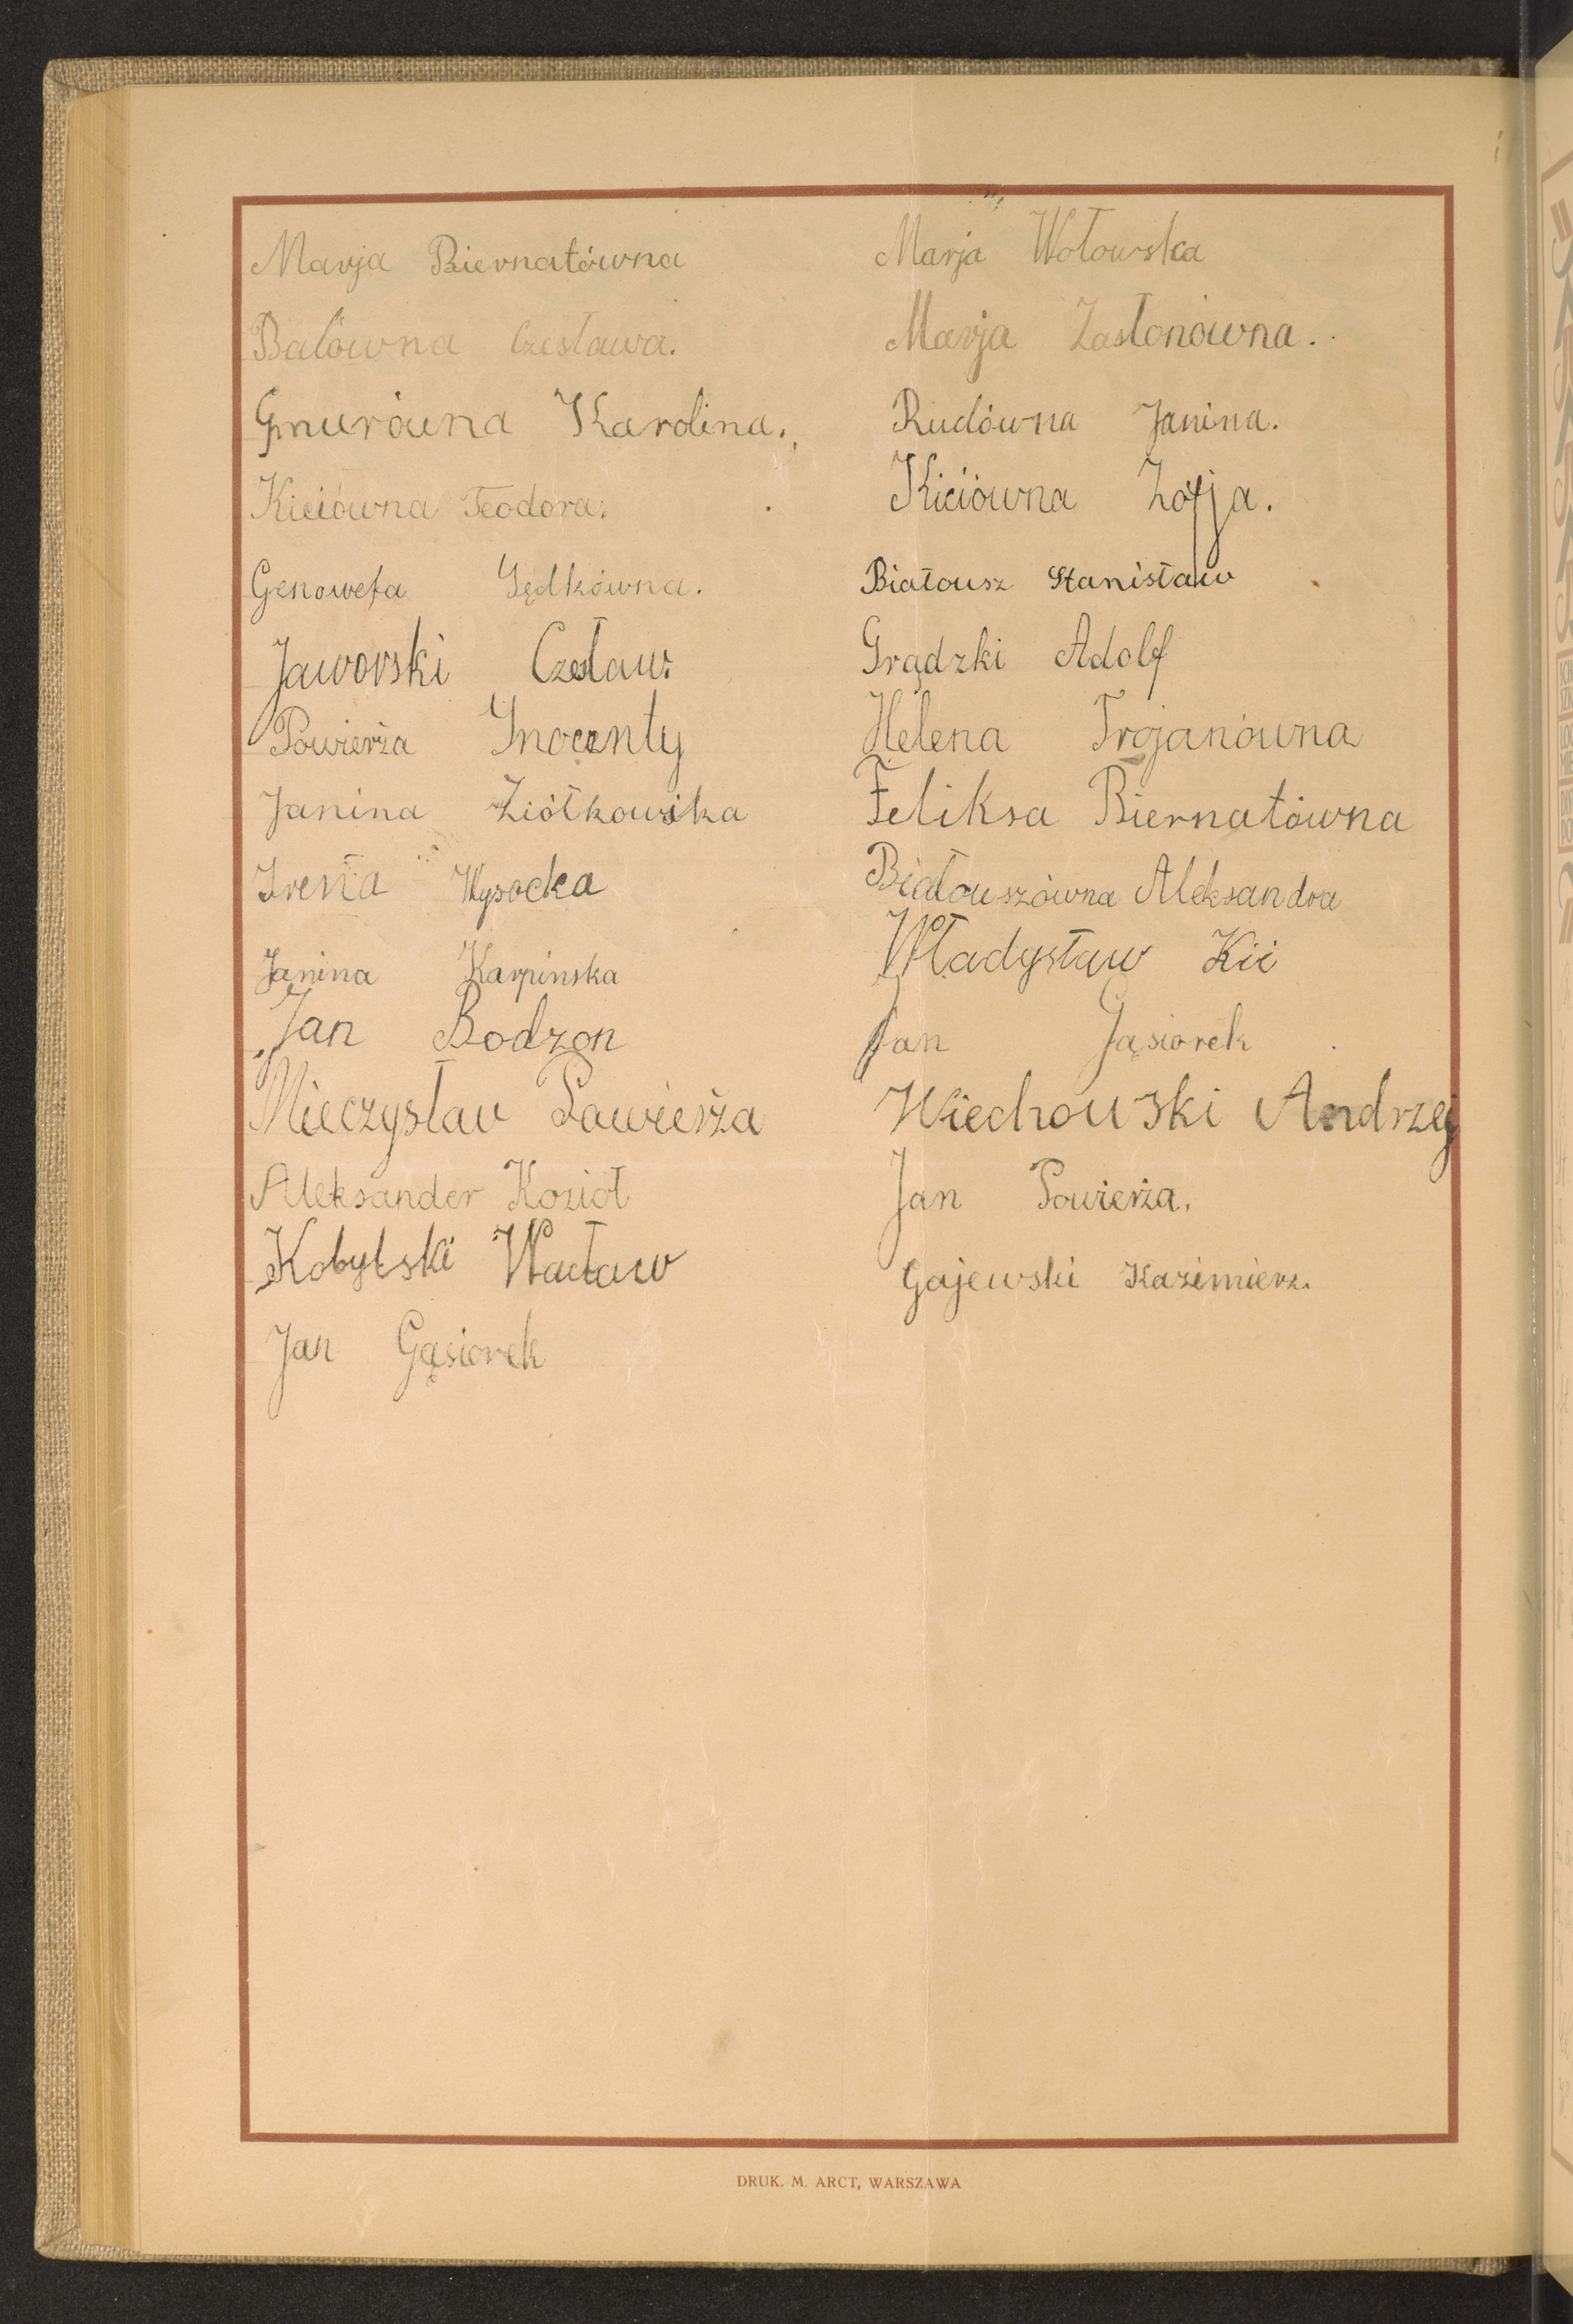 Marja Biernatówna
Balówna Czesława.
Gmurówna Karolina.
Kiciówna Teodora.
Genowefa Sędkówna.
Jaworski Czesław.
Powierża Inocenty
Janina Ziółkowska
Irena Wysocka
Janina Karpinska
Jan Bodzon
Mieczysław Powierża
Aleksander Kozioł
Kobylski Wacław
Jan Gąsiorek
Marja Wołowska
Marja Zasłonówna.
Rudówna Janina.
Kiciówna Zofja.
Białousz Stanisław
Grądzki Adolf
Helena Trojanówna
Feliksa Biernatówna
Białouszówna Aleksandra
Władysław Kić
Jan Gąsiorek
Wiechowski Andrzej
Jan Powierża.
Gajewski Kazimierz.
DRUK. M. ARCT, WARSZAWA